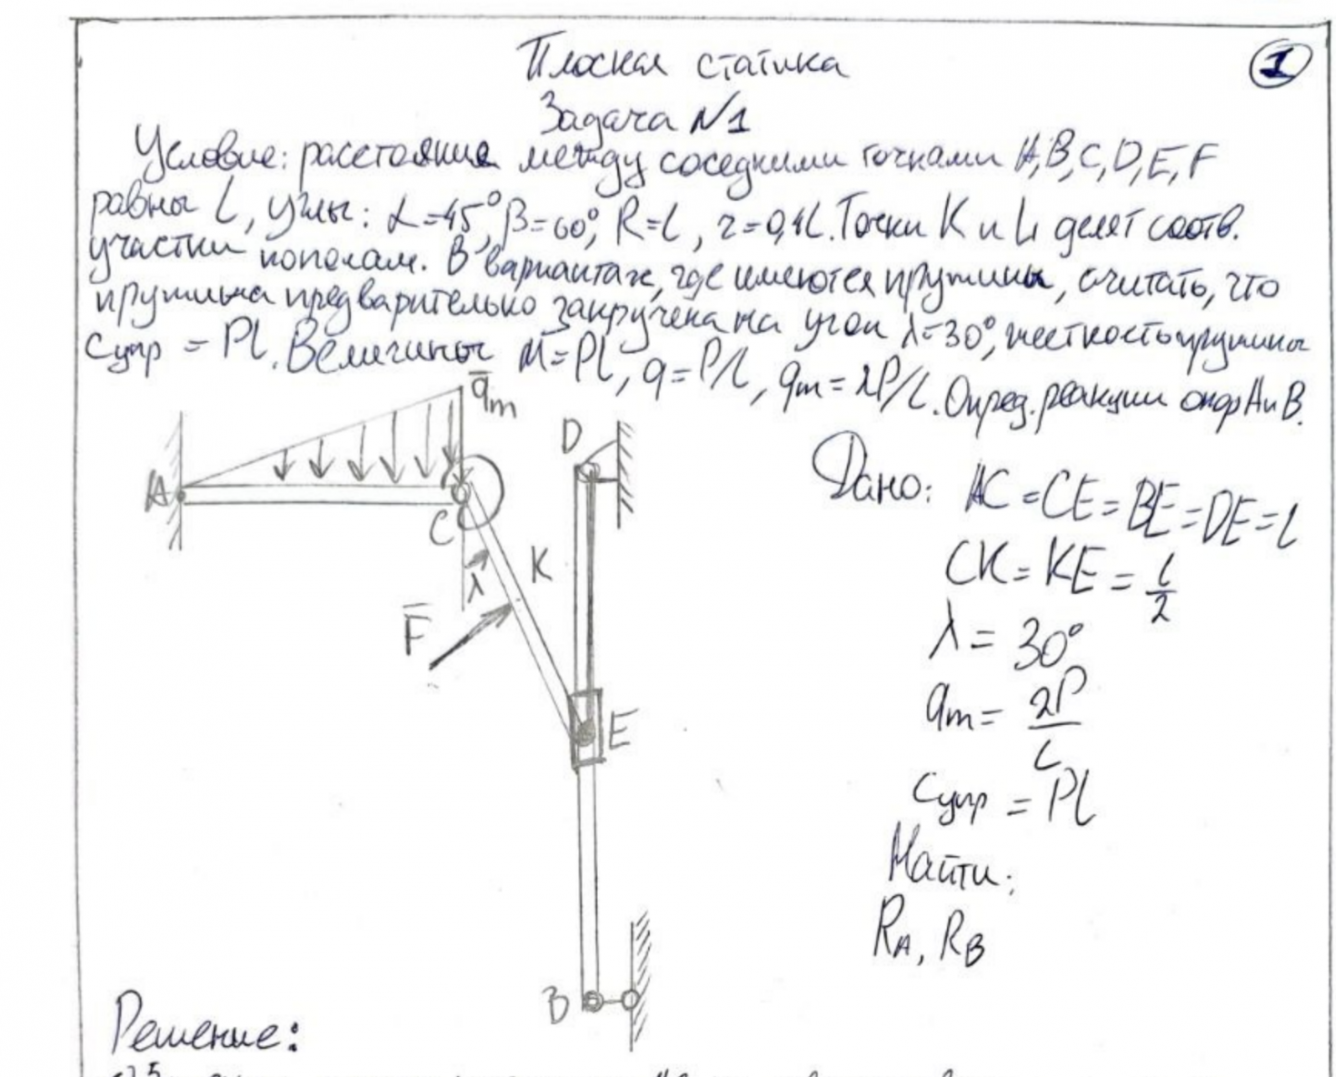 Плоская статика
1
Задача №1
Условие: расстояние между соседними точками A,B,C,D,E,F
равны L, углы: α=45°, β=60°, R=L, r=0,4L. Точки K и L делят соотв.
участки пополам. В вариантах, где имеются пружины, считать, что
пружина предварительно закручена на угол λ=30°, жесткость пружины
Cупр = Pl. Величины M=Pl, q=P/L, qm=2P/L. Опред. реакции опор A и B.
qm
A
C
λ
K
F
D
E
B
Дано: AC=CE=BE=DE=l
CK=KE=l/2
λ=30°
qm=2P/L
Cупр=Pl
Найти:
RA, RB
Решение: